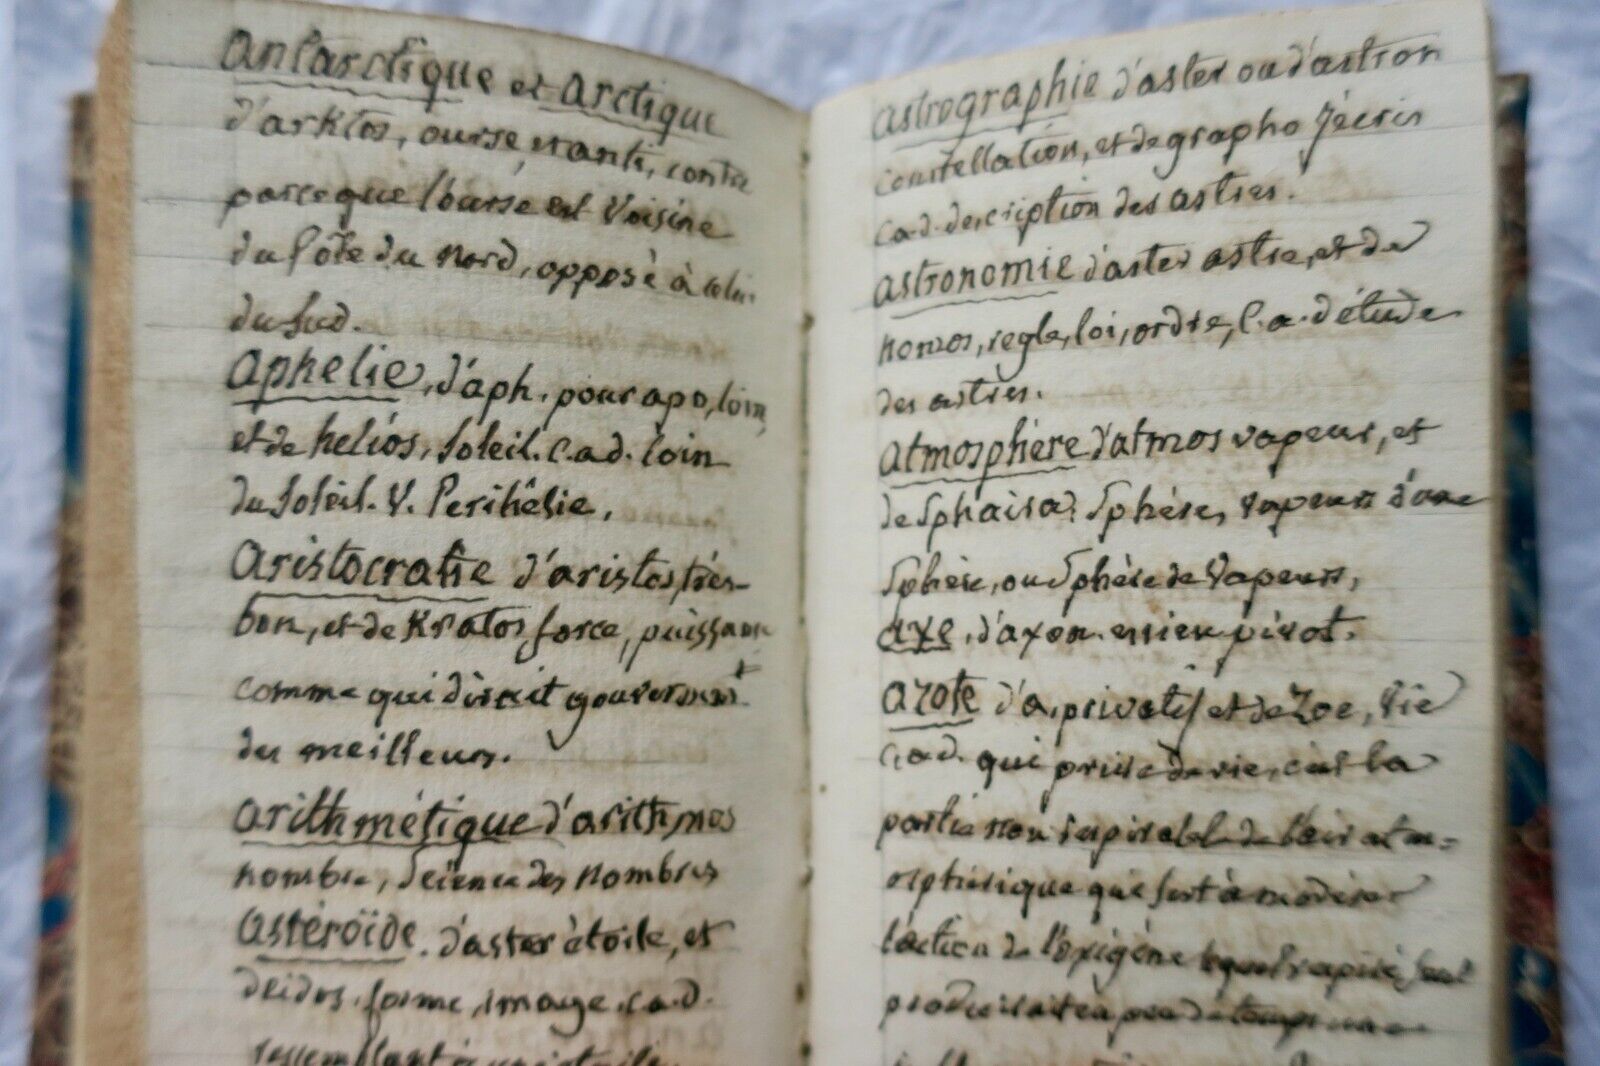 Antarctique et Arctique
d'arktos, ourse, et anti, contre
parceque l'ourse est Voisine
du Pôle du Nord, opposé à celui
du Sud.
Aphelie, d'aph. pour apo, loin,
et de helios, Soleil. C.a.d. loin
du Soleil. V. Perihélie,
Aristocratie d'aristos, très-
bon, et de Kratos force, puissance
comme qui diroit gouvernemt
des meilleurs.
Arithmétique d'arithmos
nombre, Science des Nombres
Astéroïde. d'aster étoile, et
deidos, forme, image. c.a.d.
ressemblant à
Astrographie d'aster ou d'astron
Constellation, et de grapho J'écris
c.a.d. description des astres.
Astronomie d'aster astre, et de
nomos, regle, loi, ordre, C.a.d étude
des astres.
Atmosphère d'atmos vapeur, et
de Sphaira Sphère, vapeurs d'une
Sphère, ou Sphère de Vapeurs,
Axe, d'axon essieu pivot.
Azote d'a, privatif et de Zoe, Vie
c.a.d. qui prive de vie, c'est la
partie non respirable de l'air atm=
osphérique qui sert à modérer
l'action de l'Oxigène
produiroit en peu de temps une